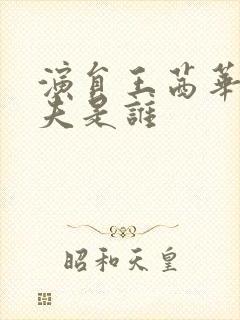 演員王茜華
夫是誰
昭和天皇